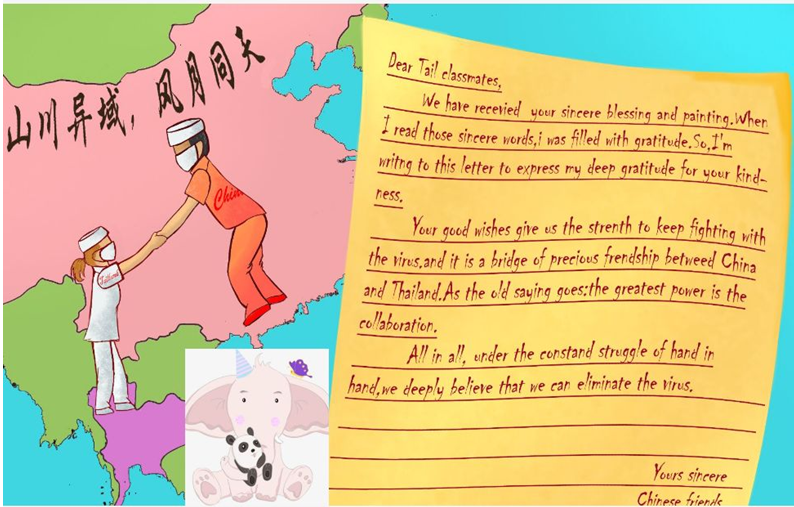 山川异域，风月同天
China
Thailand
Dear Tail classmates,
We have recevied your sincere blessing and painting.When
I read those sincere words,i was filled with gratitude.So,I'm
writng to this letter to express my deep gratitude for your kind-
ness.
Your good wishes give us the strenth to keep fighting with
the virus.and it is a bridge of precious frendship betweed China
and Thailand.As the old saying goes:the greatest power is the
collaboration.
All in all, under the constand struggle of hand in
hand,we deeply believe that we can eliminate the virus.
Yours sincere
Chinese friends